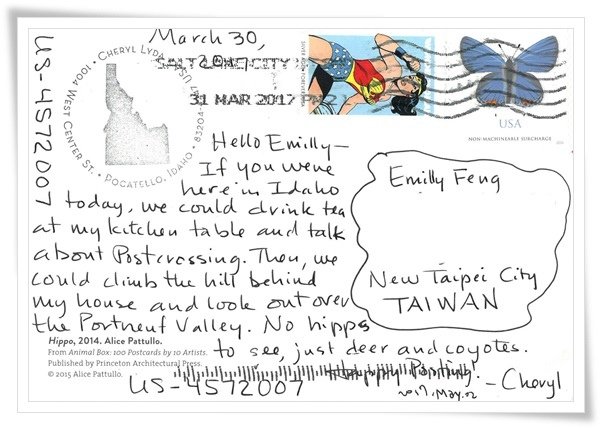 March 30,
2017
SALT LAKE CITY
31 MAR 2017 PM 2
US-4572007
CHERYL LYDA
1004 WEST CENTER ST. • POCATELLO, IDAHO • 83204
SILVER AGE
FOREVER
USA
NON-MACHINEABLE SURCHARGE
Hello Emilly—
If you were
here in Idaho
today, we could drink tea
at my kitchen table and talk
about Postcrossing. Then, we
could climb the hill behind
my house and look out over
the Portneuf Valley. No hippos
to see, just deer and coyotes.
Happy Posting!
—Cheryl
Emilly Feng
New Taipei City
TAIWAN
Hippo, 2014. Alice Pattullo.
From Animal Box: 100 Postcards by 10 Artists.
Published by Princeton Architectural Press.
© 2015 Alice Pattullo.
US-4572007
2017. May. 02